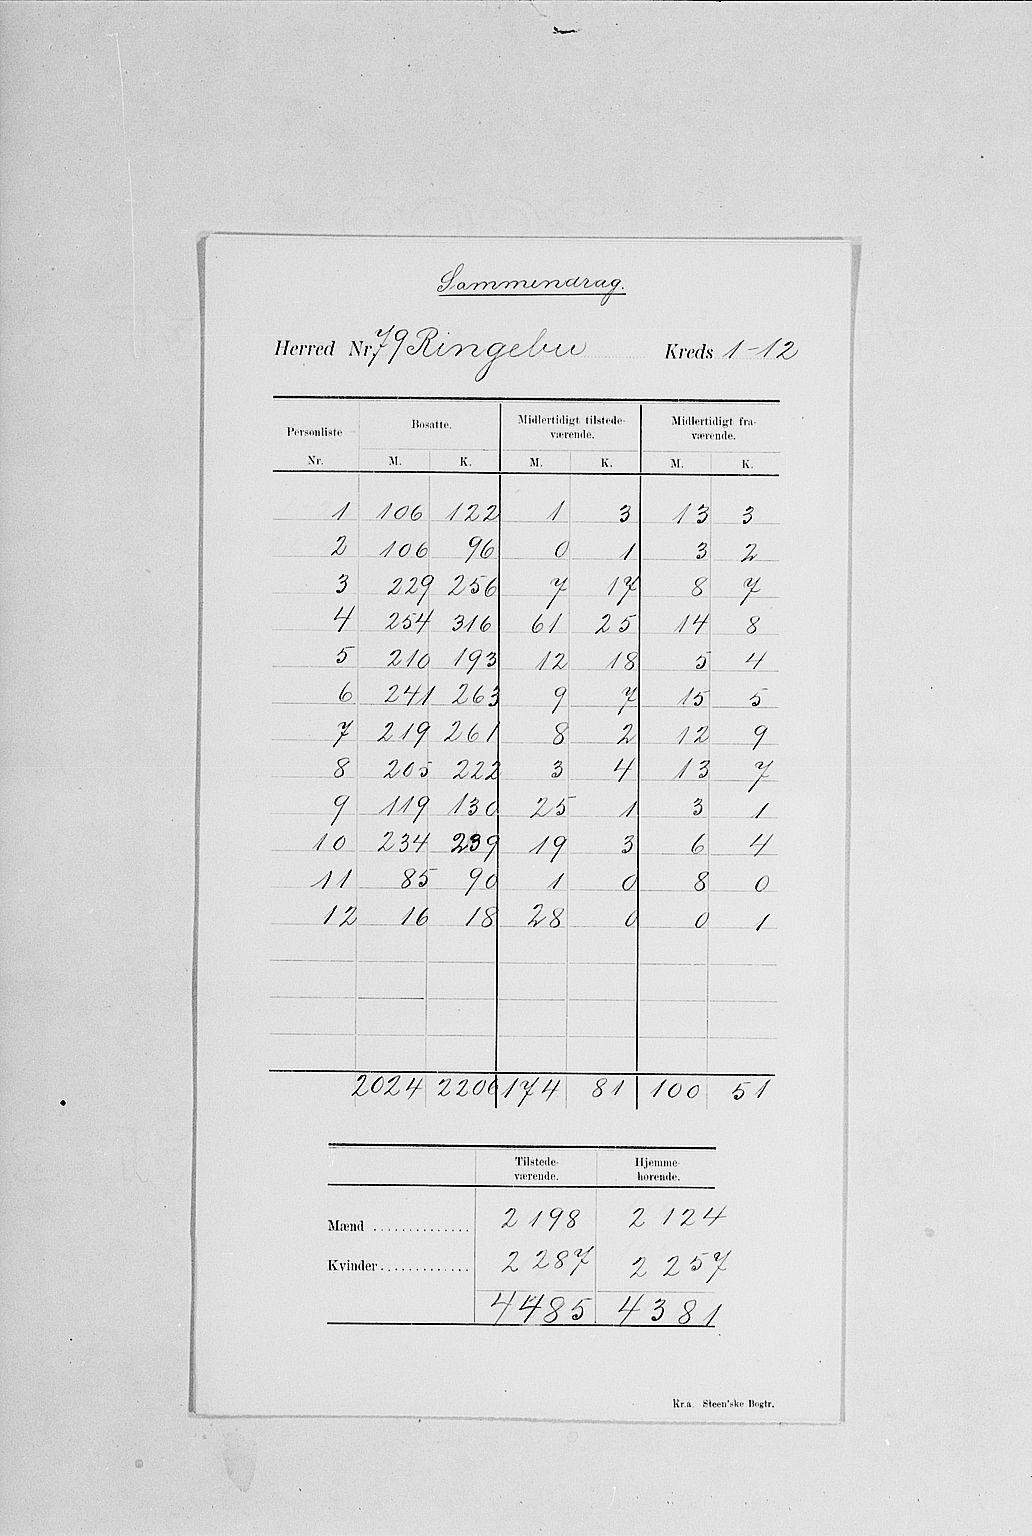 Sammendrag.
Herred Nr. 79 Ringebu Kreds 1-12
Personliste Bosatte. Midlertidigt tilstede- Midlertidigt fra-
værende. værende.
Nr. M. K. M. K. M. K.
1 106 122 1 3 13 3
2 106 96 0 1 3 2
3 229 256 7 17 8 7
4 254 316 61 25 14 8
5 210 193 12 18 5 4
6 241 263 9 7 15 5
7 219 261 8 2 12 9
8 205 222 3 4 13 7
9 119 130 25 1 3 1
10 234 239 19 3 6 4
11 85 90 1 0 8 0
12 16 18 28 0 0 1
2024 2206 174 81 100 51
Tilstede- Hjemme-
værende. hørende.
Mænd .............. 2198 2124
Kvinder ............. 2287 2257
4485 4381
Kr.a. Steen'ske Bogtr.